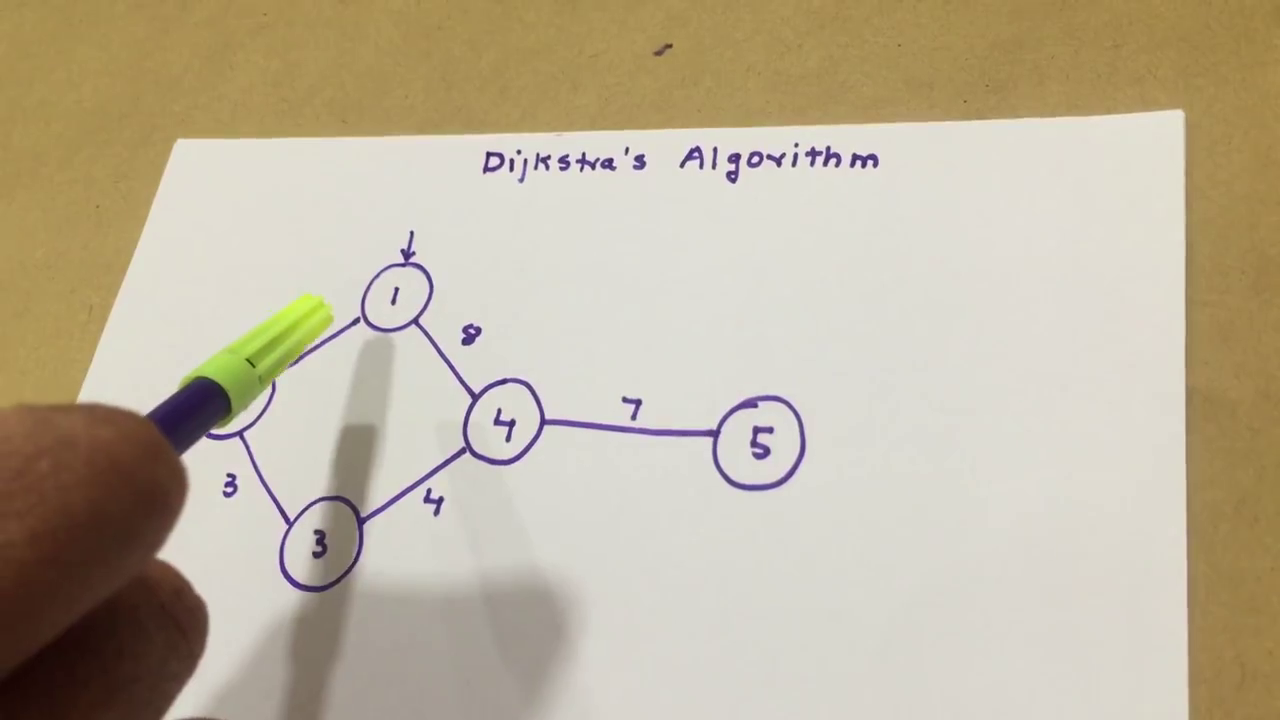 Dijkstra's Algorithm
1
8
4
7
5
3
4
3